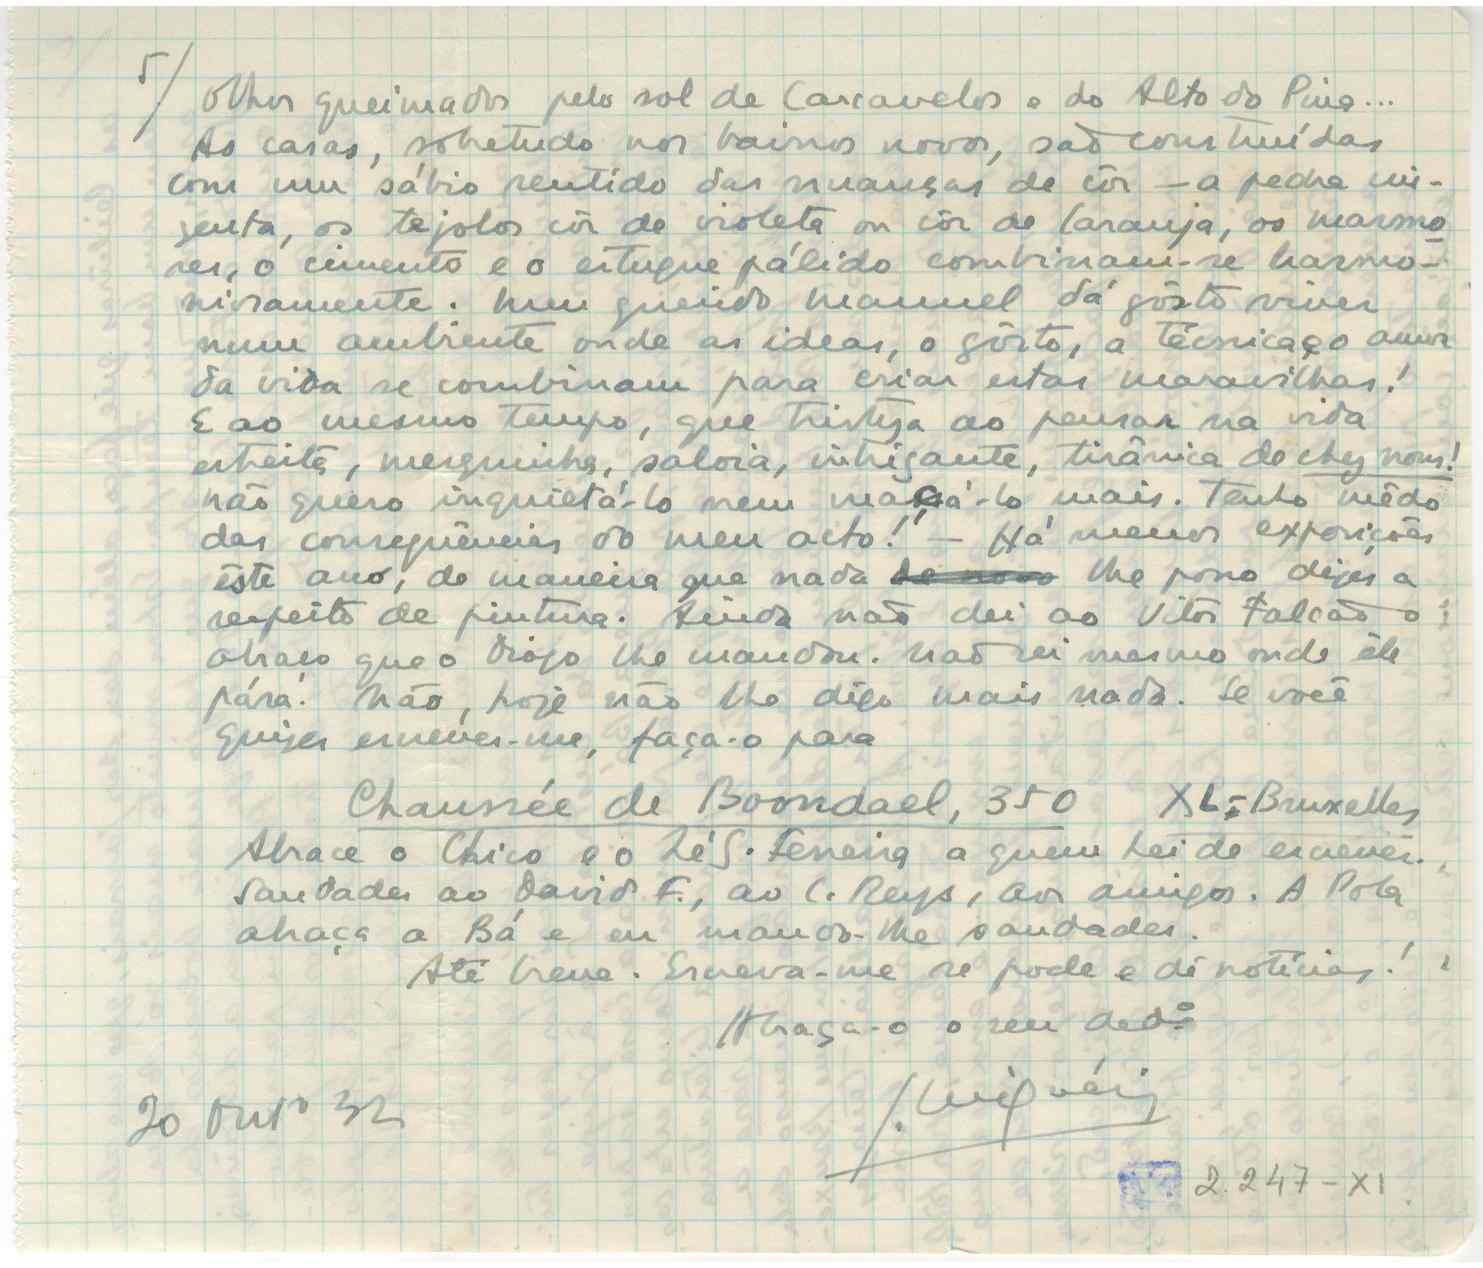 5/
olhos queimados pelo sol de Carcavelos e do Alto do Pina...
As casas, sobretudo nos bairros novos, são construídas
com um sábio sentido das nuanças de côr – a pedra cin-
zenta, os tejolos côr de violeta ou côr de laranja, os marmo
res, o cimento e o estuque pálido combinam-se harmo-
niosamente. Meu querido Manuel dá gôsto viver
num ambiente onde as ideas, o gôsto, a técnica e o amor
da vida se combinam para criar estas maravilhas!
E ao mesmo tempo, que tristeza ao pensar na vida
estreita, mesquinha, saloia, intrigante, tirânica de chez nous!
Não quero inquietá-lo nem maçá-lo mais. Tenho mêdo
das conseqüências do meu acto! – Há menos exposições
êste ano, de maneira que nada de novo lhe posso dizer a
respeito de pintura. Ainda não dei ao Vitor Falcão o
abraço que o Diogo lhe mandou. Não sei mesmo onde êle
pára! Não, hoje não lhe digo mais nada. Se você
quizer escrever-me, faça-o para
Chaussée de Boondael, 350 XL-Bruxelles
Abrace o Chico e o Zé G. Ferreira a quem hei de escrever.
Saudades ao David F., ao C. Reys, aos amigos. A Pola
abraça a Bá e eu mando-lhe saudades.
Até breve. Escreva-me se pode e dê notícias!
Abraça-o o seu dedº
J. Rodrigues Miguéis
20 Outº 32
2.247-XI